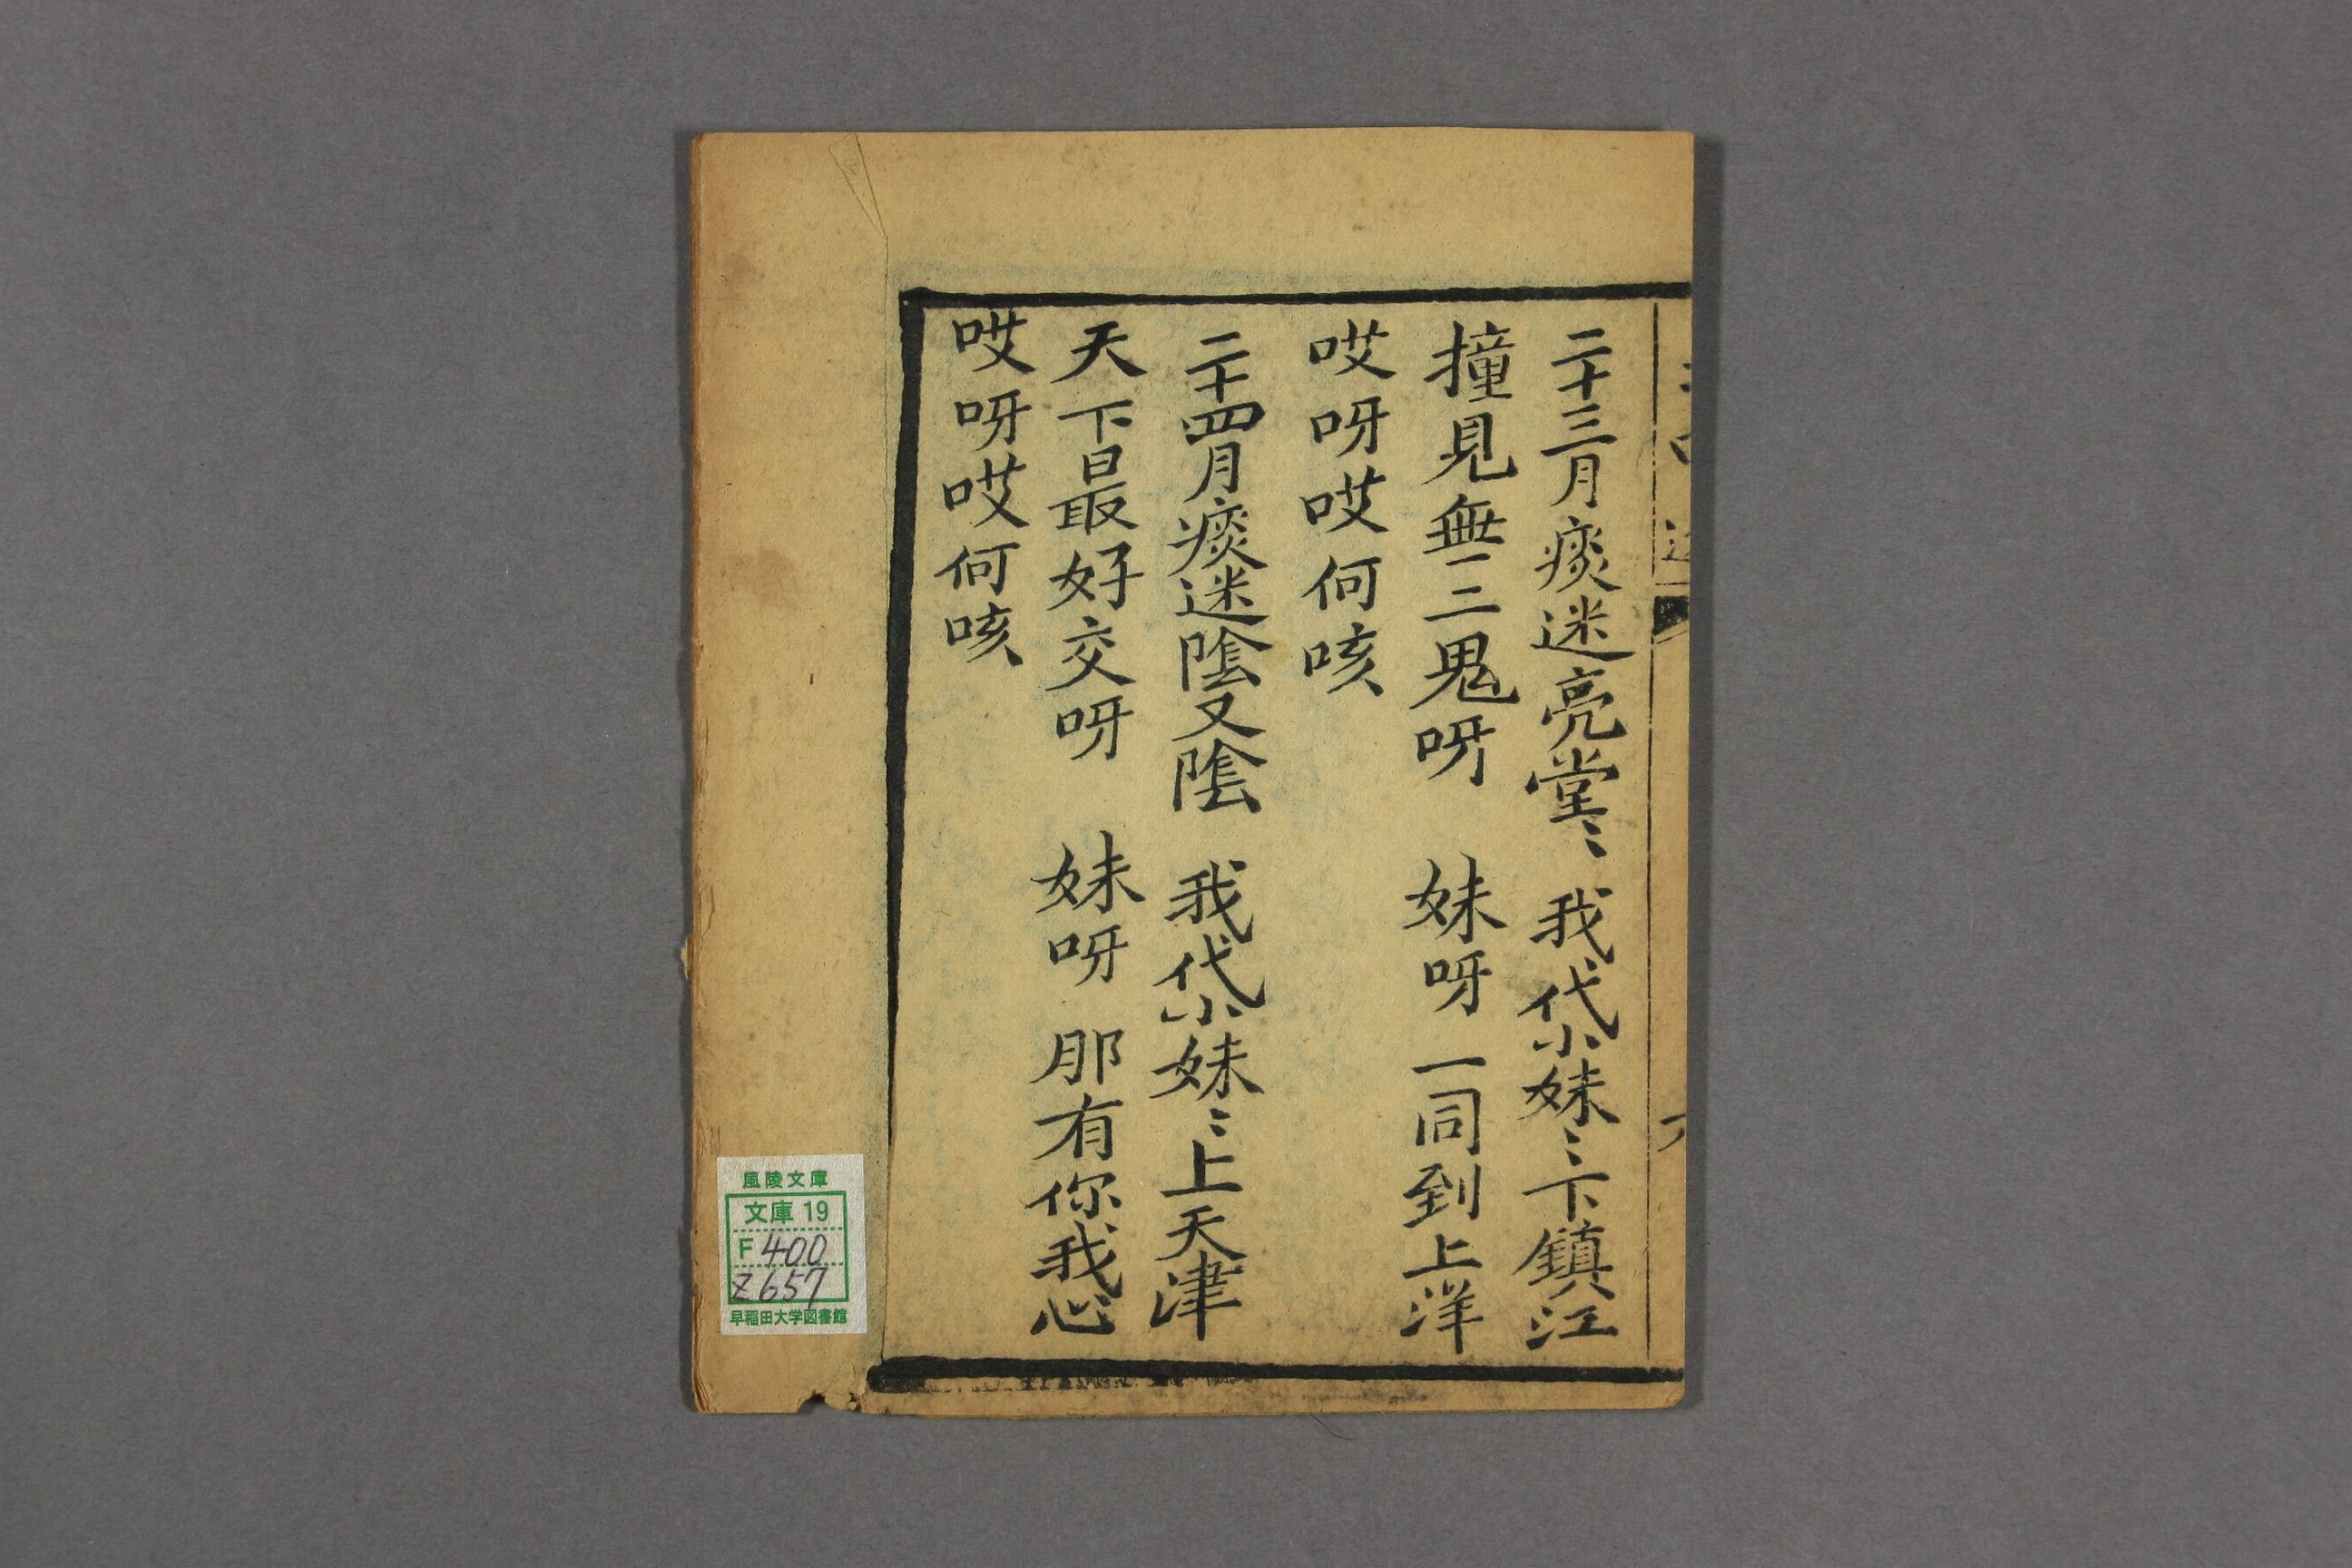 二十三月痰迷亮堂〻 我代小妹〻下鎮江
撞見無二鬼呀 妹呀 一同到上洋
哎呀哎何咳
二十四月痰迷陰又陰 我代小妹〻上天津
天下最好交呀 妹呀 那有你我心
哎呀哎何咳
風陵文庫
文庫 19
F 400
Z 657
早稲田大学図書館